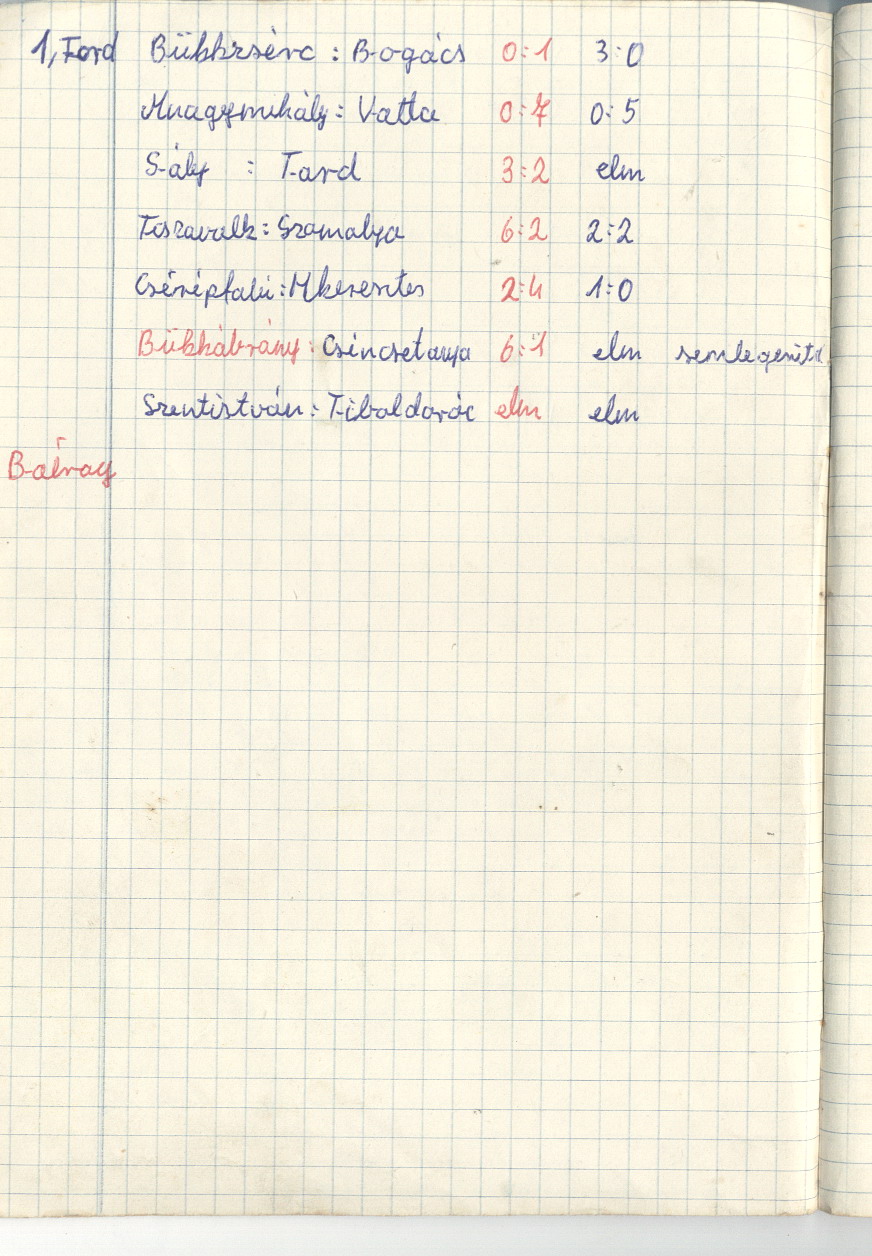 1, Ford Bükkzsérc : Bogács 0:1 3:0
Mnagymihály : Vatta 0:7 0:5
Sály : Tard 3:2 elm
Tiszavalk : Szomolya 6:2 2:2
Cserépfalu : Mkeresztes 2:4 1:0
Bükkábrány : Csincsetanya 6:1 elm semlegenítél
Szentistván : Tibolddaróc elm elm